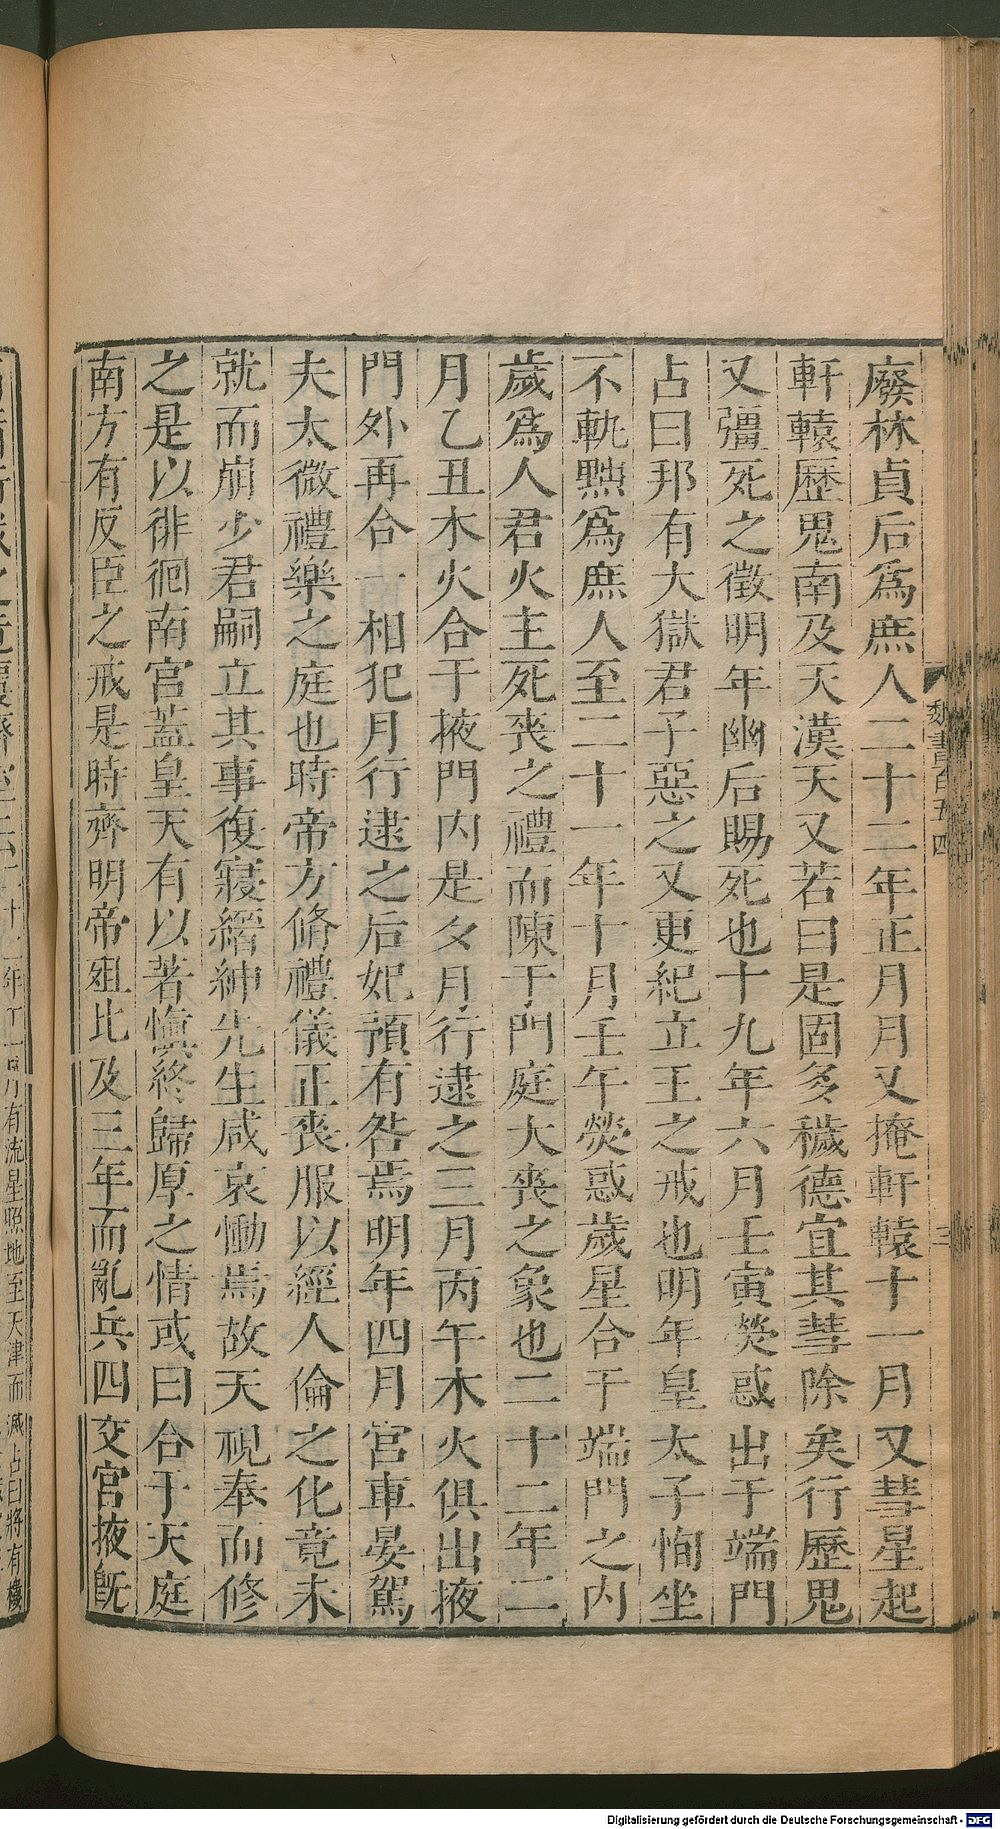 廢林貞后爲庶人二十二年正月月又掩軒轅十一月又彗星起
軒轅歷鬼南及天漢天又若曰是固多穢德宜其彗除矣行歷鬼
又彊死之徵明年幽后賜死也十九年六月壬寅熒惑出于端門
占曰邦有大獄君子惡之又更紀立王之戒也明年皇太子恂坐
不軌黜爲庶人至二十一年十月壬午熒惑歲星合于端門之内
歲爲人君火主死喪之禮而陳于門庭大喪之象也二十二年二
月乙丑木火合于掖門内是夕月行逮之三月丙午木火俱出掖
門外再合一相犯月行逮之后妃預有咎焉明年四月宮車晏駕
夫太微禮樂之庭也時帝方脩禮儀正喪服以經人倫之化竟未
就而崩少君嗣立其事復寢縉紳先生咸哀慟焉故天視奉而修
之是以徘徊南宮蓋皇天有以著慎終歸厚之情或曰合于天庭
南方有反臣之戒是時齊明帝殂比及三年而亂兵四交宮掖旣
魏書百五四
三
年十一月有流星照地至天津而滅占曰將有樓
Digitalisierung gefördert durch die Deutsche Forschungsgemeinschaft - DFG